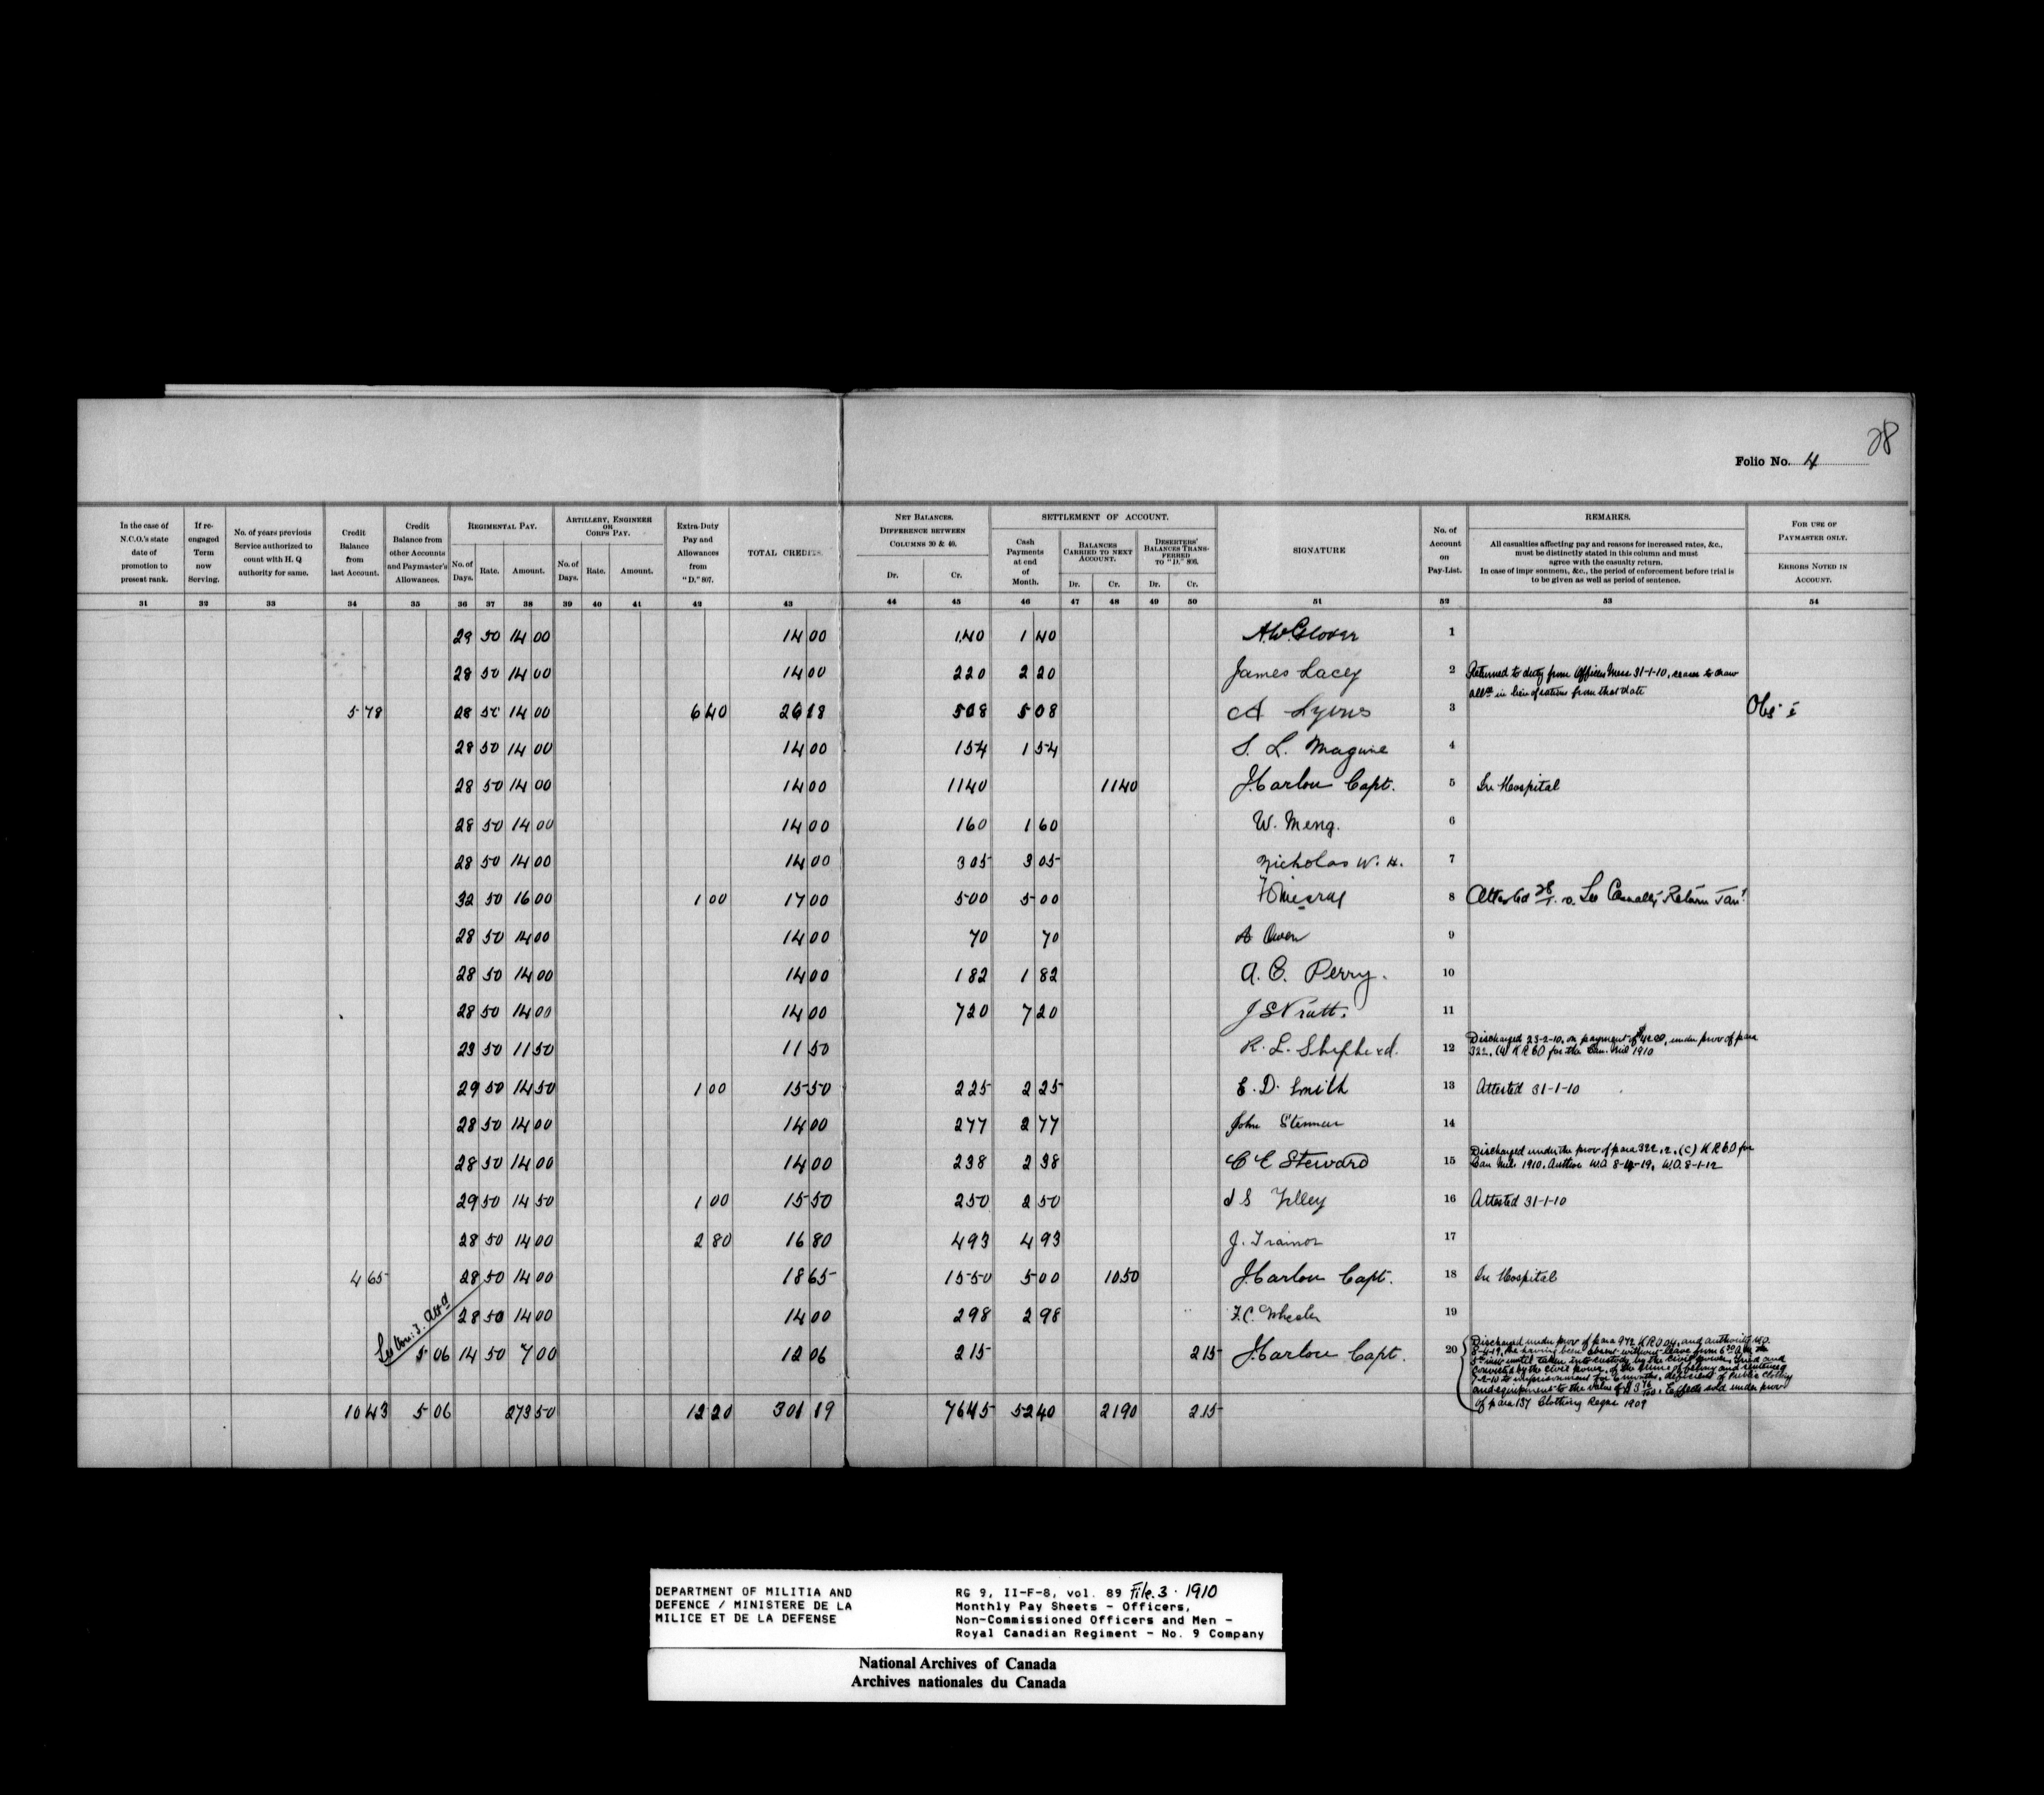 28
Folio No. 4
In the case of N.C.O.'s state date of promotion to present rank.
If re-engaged Term now Serving.
No. of years previous Service authorized to count with H. Q authority for same.
Credit Balance from last Account.
Credit Balance from other Accounts and Paymaster's Allowances.
REGIMENTAL PAY.
No. of Days. Rate. Amount.
ARTILLERY, ENGINEER OR CORPS PAY.
No. of Days. Rate. Amount.
Extra-Duty Pay and Allowances from "D." 807.
TOTAL CREDITS.
NET BALANCES.
DIFFERENCE BETWEEN COLUMNS 30 & 40.
Dr. Cr.
SETTLEMENT OF ACCOUNT.
Cash Payments at end of Month.
BALANCES CARRIED TO NEXT ACCOUNT.
Dr. Cr.
DESERTERS' BALANCES TRANSFERRED TO "D." 808.
Dr. Cr.
SIGNATURE
No. of Account on Pay-List.
REMARKS.
All casualties affecting pay and reasons for increased rates, &c.,
must be distinctly stated in this column and must
agree with the casualty return.
In case of impr sonment, &c., the period of enforcement before trial is
to be given as well as period of sentence.
FOR USE OF PAYMASTER ONLY.
ERRORS NOTED IN ACCOUNT.
31 32 33 34 35 36 37 38 39 40 41 42 43 44 45 46 47 48 49 50 51 52 53 54
29 50 14 00 14 00 1 40 1 40 A.W. Glover 1
28 50 14 00 14 00 2 20 2 20 James Lacey 2 Returned to duty from Officers Mess 31-1-10, ceases to draw
allce in lieu of rations from that date
5 78 28 50 14 00 6 40 26 18 5 08 5 08 A Lyons 3 Obs.
28 50 14 00 14 00 1 54 1 54 S. L. Maguire 4
28 50 14 00 14 00 11 40 11 40 J. Carlou Capt. 5 In Hospital
28 50 14 00 14 00 1 60 1 60 W. Meng. 6
28 50 14 00 14 00 3 05 3 05 Nicholas W. H. 7
32 50 16 00 1 00 17 00 5 00 5 00 8 Attested 28/1. See Casualty Return Jan'
28 50 14 00 14 00 70 70 A Owen 9
28 50 14 00 14 00 1 82 1 82 A. C. Perry. 10
28 50 14 00 14 00 7 20 7 20 J S Pratt. 11
23 50 11 50 11 50 R. L. Shepherd. 12 Discharged 23-2-10, on payment of $42.00, under prov of para
322, K R & O for the Can. Mil 1910
29 50 14 50 1 00 15 50 2 25 2 25 E. D. Smith 13 Attested 31-1-10
28 50 14 00 14 00 2 77 2 77 John Stennar 14
28 50 14 00 14 00 2 38 2 38 C E Steward 15 Discharged under the prov of para 322, 2, (C) K R & O for
Can Mil. 1910. W.O. 8-1-12
29 50 14 50 1 00 15 50 2 50 2 50 16 Attested 31-1-10
28 50 14 00 2 80 16 80 4 93 4 93 J. Trainor 17
4 65 28 50 14 00 18 65 15 50 5 00 10 50 J. Carlou Capt. 18 In Hospital
28 50 14 00 14 00 2 98 2 98 F.C. Wheeler 19
5 06 14 50 7 00 12 06 2 15 2 15 J. Carlou Capt. 20 Discharged under prov of para 342 K R O 04, and authority H.Q.
he having been absent without leave from
until taken into custody by the Civil power, tried and
convicted by the Civil power, of the crime of felony and sentenced
7-2-10 to imprisonment for 6 months, deficient of Public Clothing
and equipment to the value of Effects sold under prov
of para 137 Clothing Regns 1909
10 43 5 06 273 50 12 20 301 19 76 45 52 40 21 90 2 15
DEPARTMENT OF MILITIA AND
DEFENCE / MINISTERE DE LA
MILICE ET DE LA DEFENSE
RG 9, II-F-8, vol. 89 File. 3 · 1910
Monthly Pay Sheets - Officers,
Non-Commissioned Officers and Men -
Royal Canadian Regiment - No. 9 Company
National Archives of Canada
Archives nationales du Canada